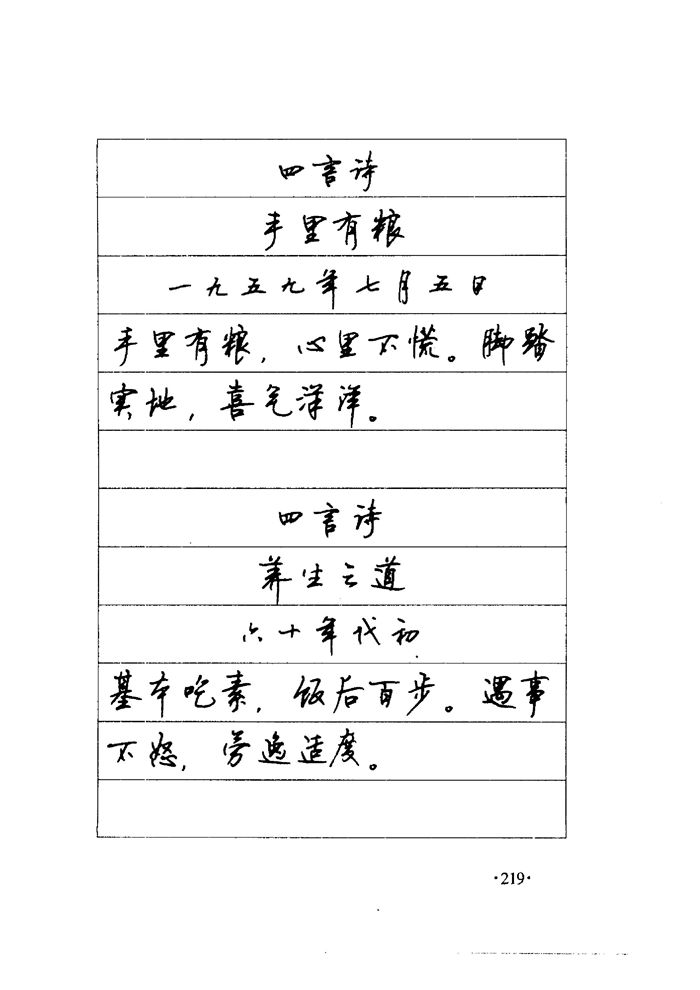 四言诗
手里有粮
一九五九年七月五日
手里有粮，心里不慌。脚踏
实地，喜气洋洋。
四言诗
养生之道
六十年代初
基本吃素，饭后百步。遇事
不怒，劳逸适度。
·219·